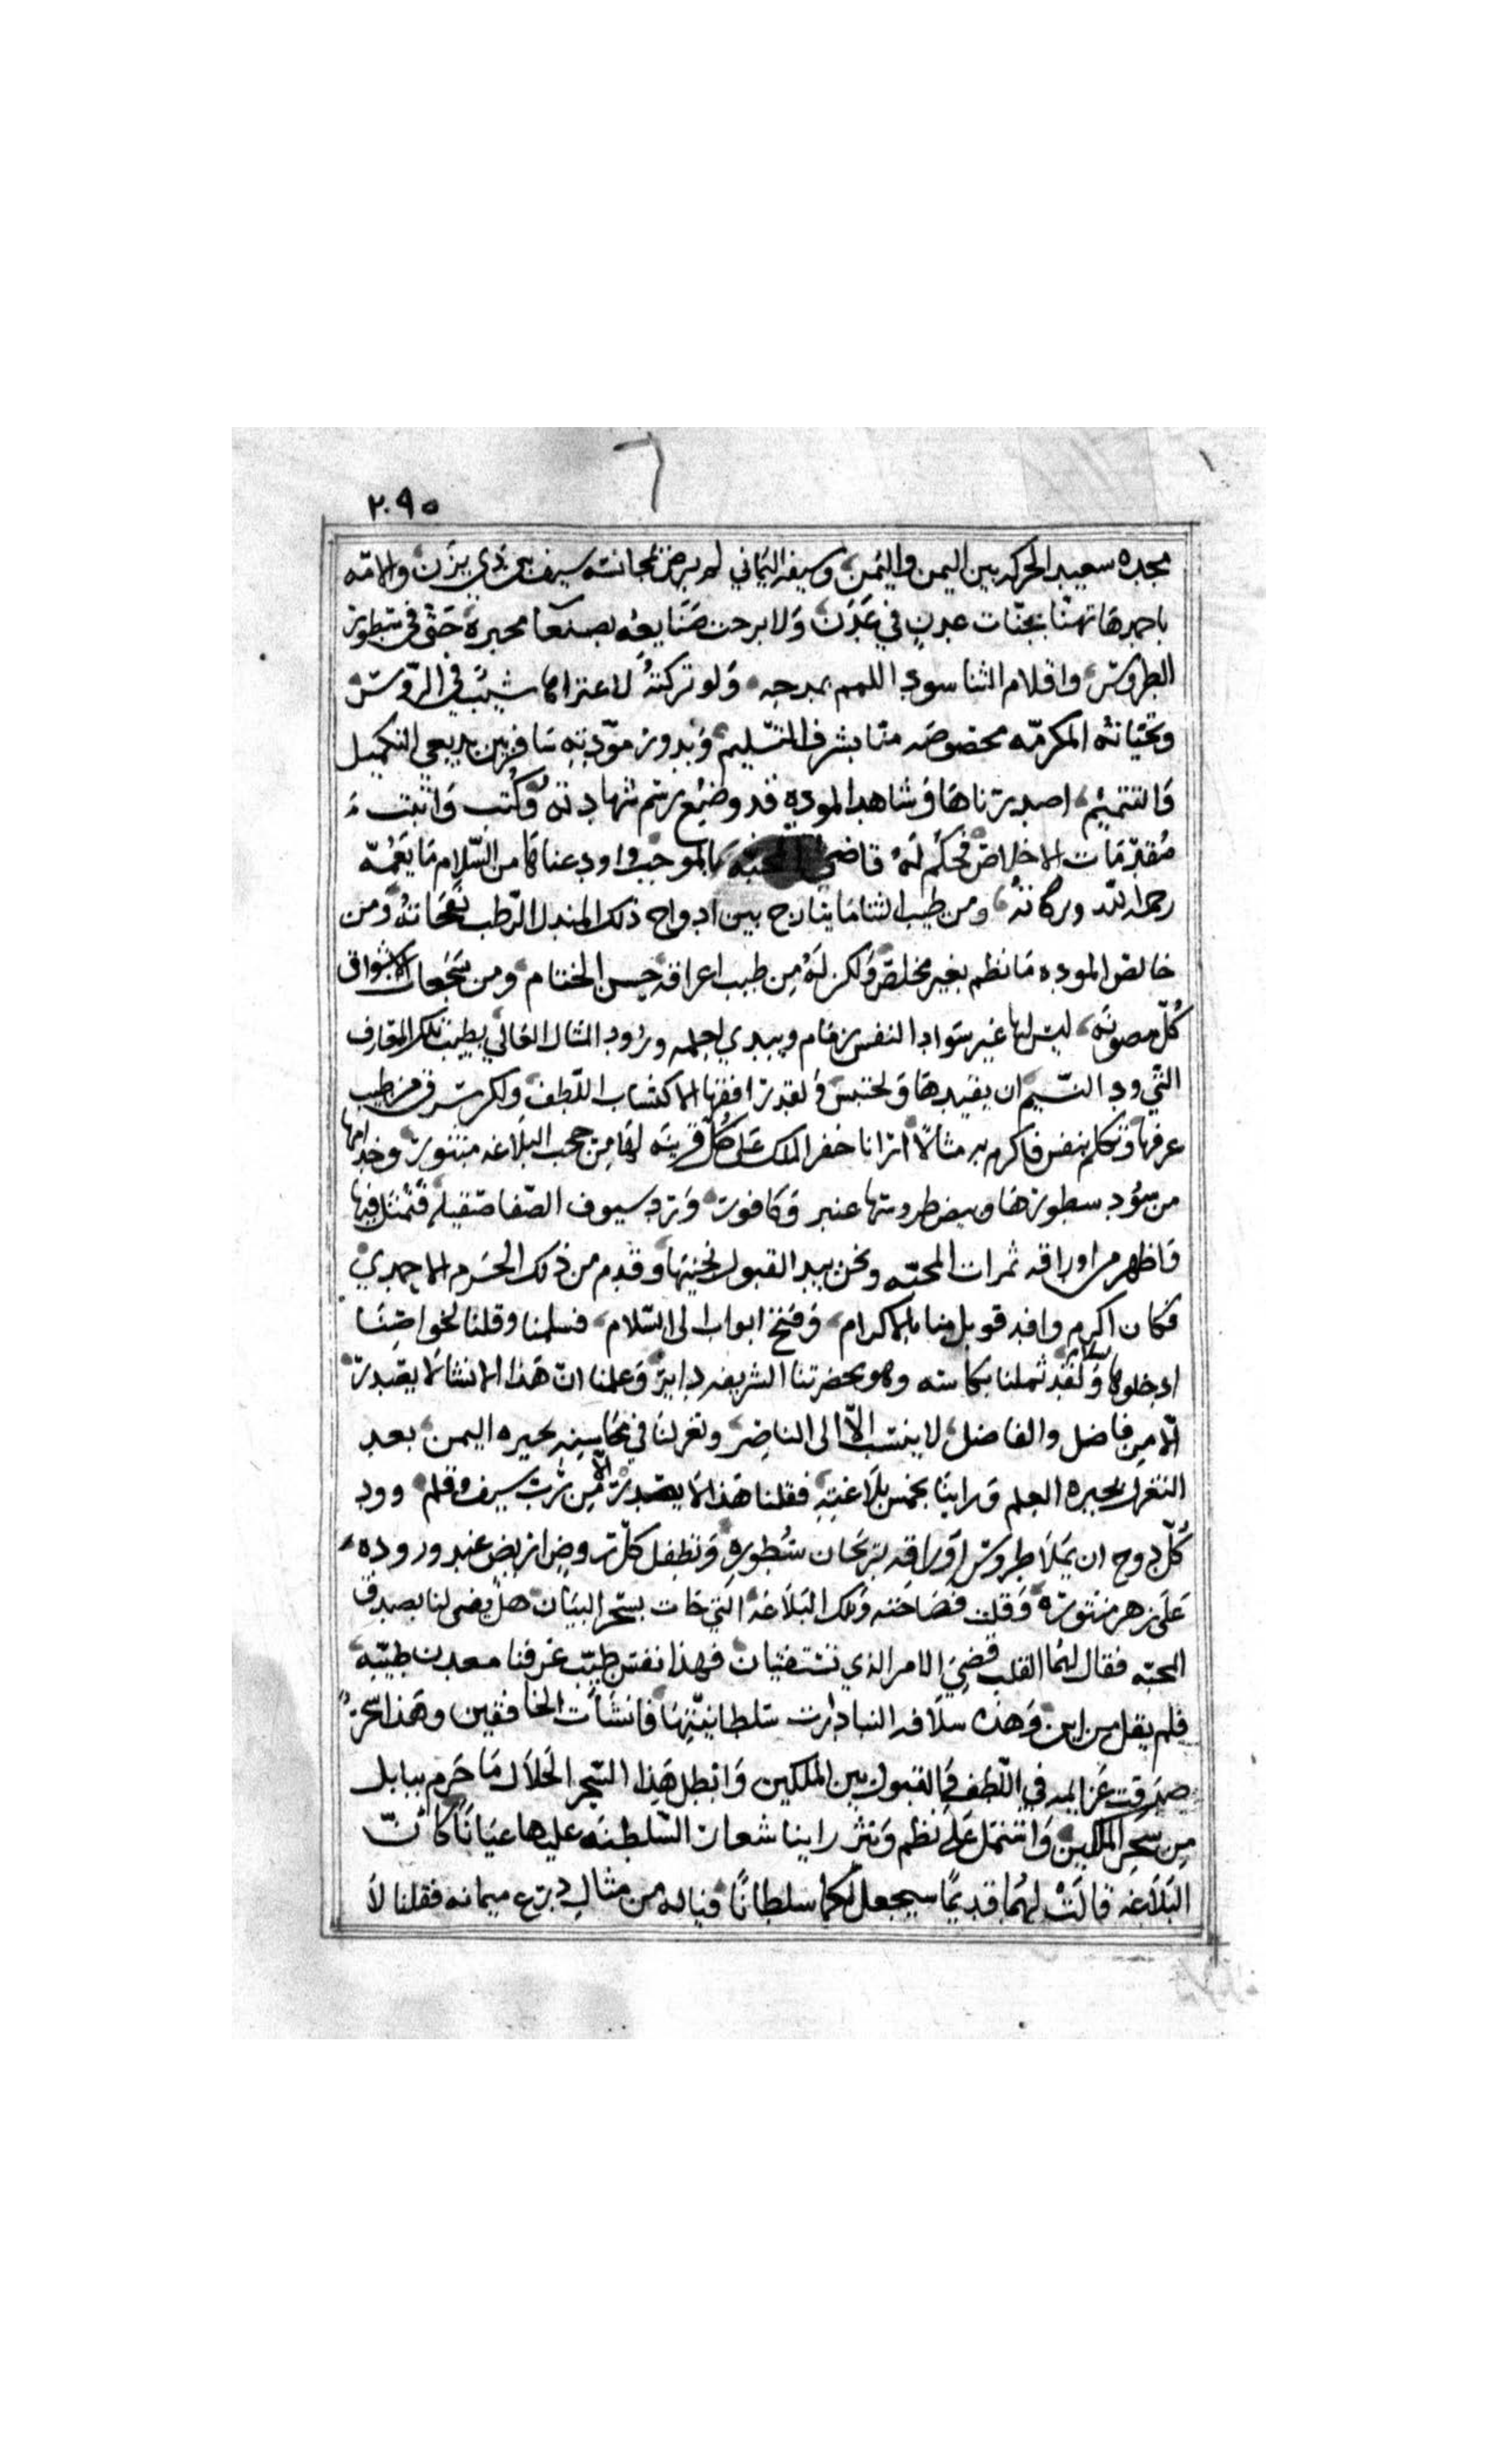 ٢٠٩٥
مجده سعيد الحركه بين اليمن واليُمن وسيفه اليماني لم يرض بمجانسة سيف بن ذي يزن والامّه
باحمدها تهنّا بجنّات عدنٍ في عَدَن وَلا برحت صَنَايعُه بصنعَا محبرة حَتّى في سطور
الطروس واقلام الثنا سود اللمم بمدحه وَلو تركتهُ لاعتراها شيبٌ في الروس
وتحيّاته المكرمّه مخصوصه منّا بشرف التسليم وَبدور مَوّدته سَافره بين بديعي التكميل
وَالتتميم اصدرناهَا وَشاهد الموده قد وضع رسم شهادته وكُتب وَاثبت
مُقدّمَات الاخلاص فحكم لهُ قاضي المحبّه بالموجب واودعناهَا من السّلام مَا يَعُمّه
رحمة الله وبركاته ومن طيب الثنا مَا يتارج بين ادواح ذلك المندل الرّطب نَفحَاته وَمن
خالص الموده مَا نظم بغير مخلص وَلكن لهُ مِن طيب اعراقه حسن الختام ومن سَجَعات الاشواق
كُلّ مصونَه ليس لها غير سَواد النفس زمَام ويبدي لعلمه ورُود المثال العَالي بطيب تلك المعَارف
التي ود النّسيم ان يقيّدهَا وَيحتبس وَلقد رافقها لاكتساب اللّطف ولكن سَرق من طيب
عرفها وَتكلم بنفس فاكرم به مثالاً ارانا خفر الملك عَلى كُلّ قرينَه لهَا مِن حجب البَلاغه منثور وخدامها
من سُود سطورهَا وبيض طروسها عنبر وَكافور وَترد سيوف الصّفا صقيله فَتُمثل فيها
فَاظهر من اوراقه ثمرات المحبّه ونحن بيد القبول نجنيهَا وَقدم من ذلك الحَرَم الاحمدي
فكَان اكرم وافد قوبل منا بالاكرام وَفتح ابواب الى السّلام فسلمنا وقلنا لخواصّنَا
ادخلوها بسلام وَلقد ثملنا بكاسه وهو بحضرتنا الشريفه دايرٌ وَعلمنا انّ هَذا الانشا لَا يصدر
الّا من فاضل والفاضل لا ينتسب الّا الى الناضِر وتغزلنَا في مَحَاسِنِه بحيره اليمن بعد
التغزل بحيره العلم وَراينَا بخمس بَلاغتِهِ فقلنا هَذا لا يصدر الّا مِن رَبّ سيف وقلم وود
كُلّ دوح ان يَملَا طروس اَورَاقه برَيحَان سُطورهِ وَتطفل كلّ روض اريض عند وروده
عَلى زهر منثوره وَقلت فصَاحته وَتلك البَلاغه التي جَات بسحر البيَان هل يقضى لنا بصدق
المحبّه فقال لهُما القلب قُضِيَ الامر الذي تستفتيان فهذا نفَس طيّب عَرفنا معدن طيبه
فلم يقل من اين وَهَذه سلَافه النبا دَارت سَلطانيّتهَا فانشَأت الخافقين وهَذا سحرٌ
صَدقت عَزايمه في اللّطف وَالقبول بين الملكين وَابطل هَذا السّحر الحَلال مَا حَرم ببابل
مِن سِحر الملكين وَاشتمل عَلى نظم وَنثر راينا شعار السّلطنَه عليها عيَاناً كَانّ
البَلَاغه قالَتْ لهُما قديمًا سيجعل لكما سلطانًا فياله من مثالٍ درّع ميمانه فقلنا لَا